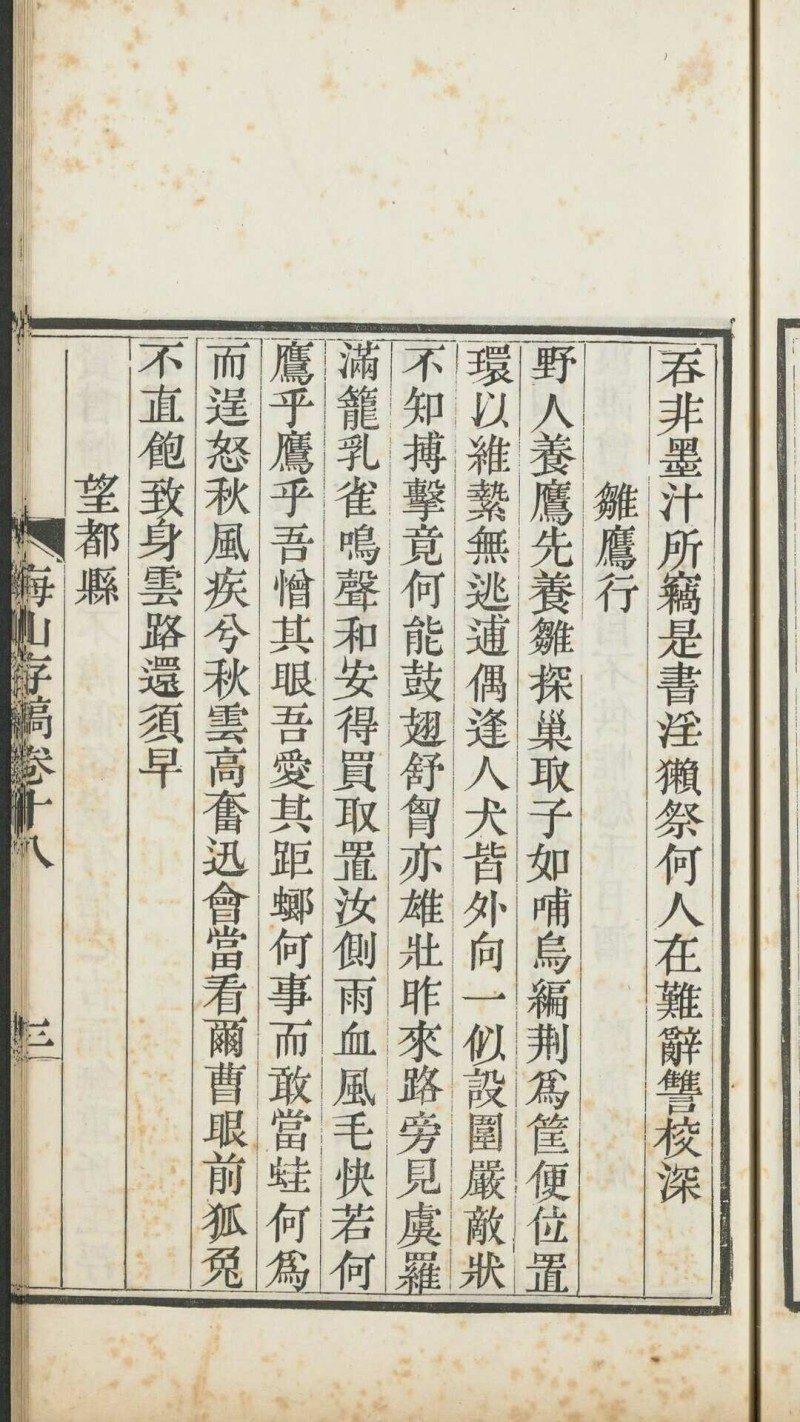 吞非墨汁所竊是書淫獺祭何人在難辭讐校深
雛鷹行
野人養鷹先養雛探巢取子如哺烏編荆爲筐便位置
環以維縶無逃逋偶逢人犬皆外向一似設圍嚴敵狀
不知搏擊竟何能鼓翅舒胷亦雄壯昨來路旁見虞羅
滿籠乳雀鳴聲和安得買取置汝側雨血風毛快若何
鷹乎鷹乎吾憎其眼吾愛其距螂何事而敢當蛙何爲
而逞怒秋風疾兮秋雲高奮迅會當看爾曹眼前狐兔
不直飽致身雲路還須早
望都縣
海山存稿卷十八
三